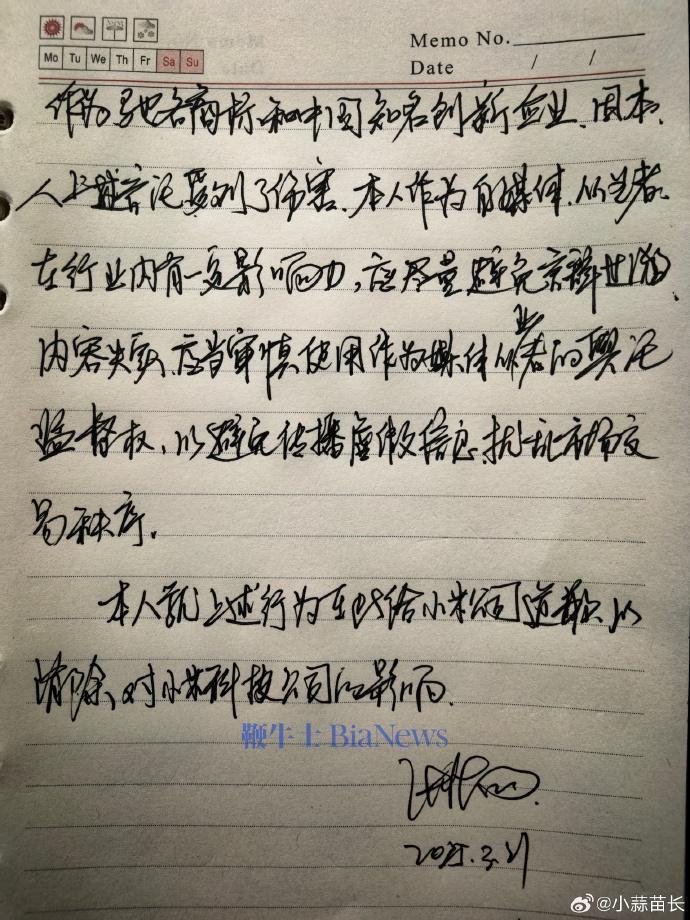 Mo Tu We Th Fr Sa Su
Memo No.
Date / /
作为驰名商标和中国知名创新企业、因本
人上述言论受到了伤害、本人作为自媒体从业者、
在行业内有一定影响力，应尽量避免
内容失实、应当审慎使用作为媒体从业者的舆论
监督权、以避免传播虚假信息、扰乱市场交
易秩序。
本人就上述行为在此给小米公司道歉以
清除、对小米科技公司的影响.
鞭牛士 BiaNews
@小蒜苗长